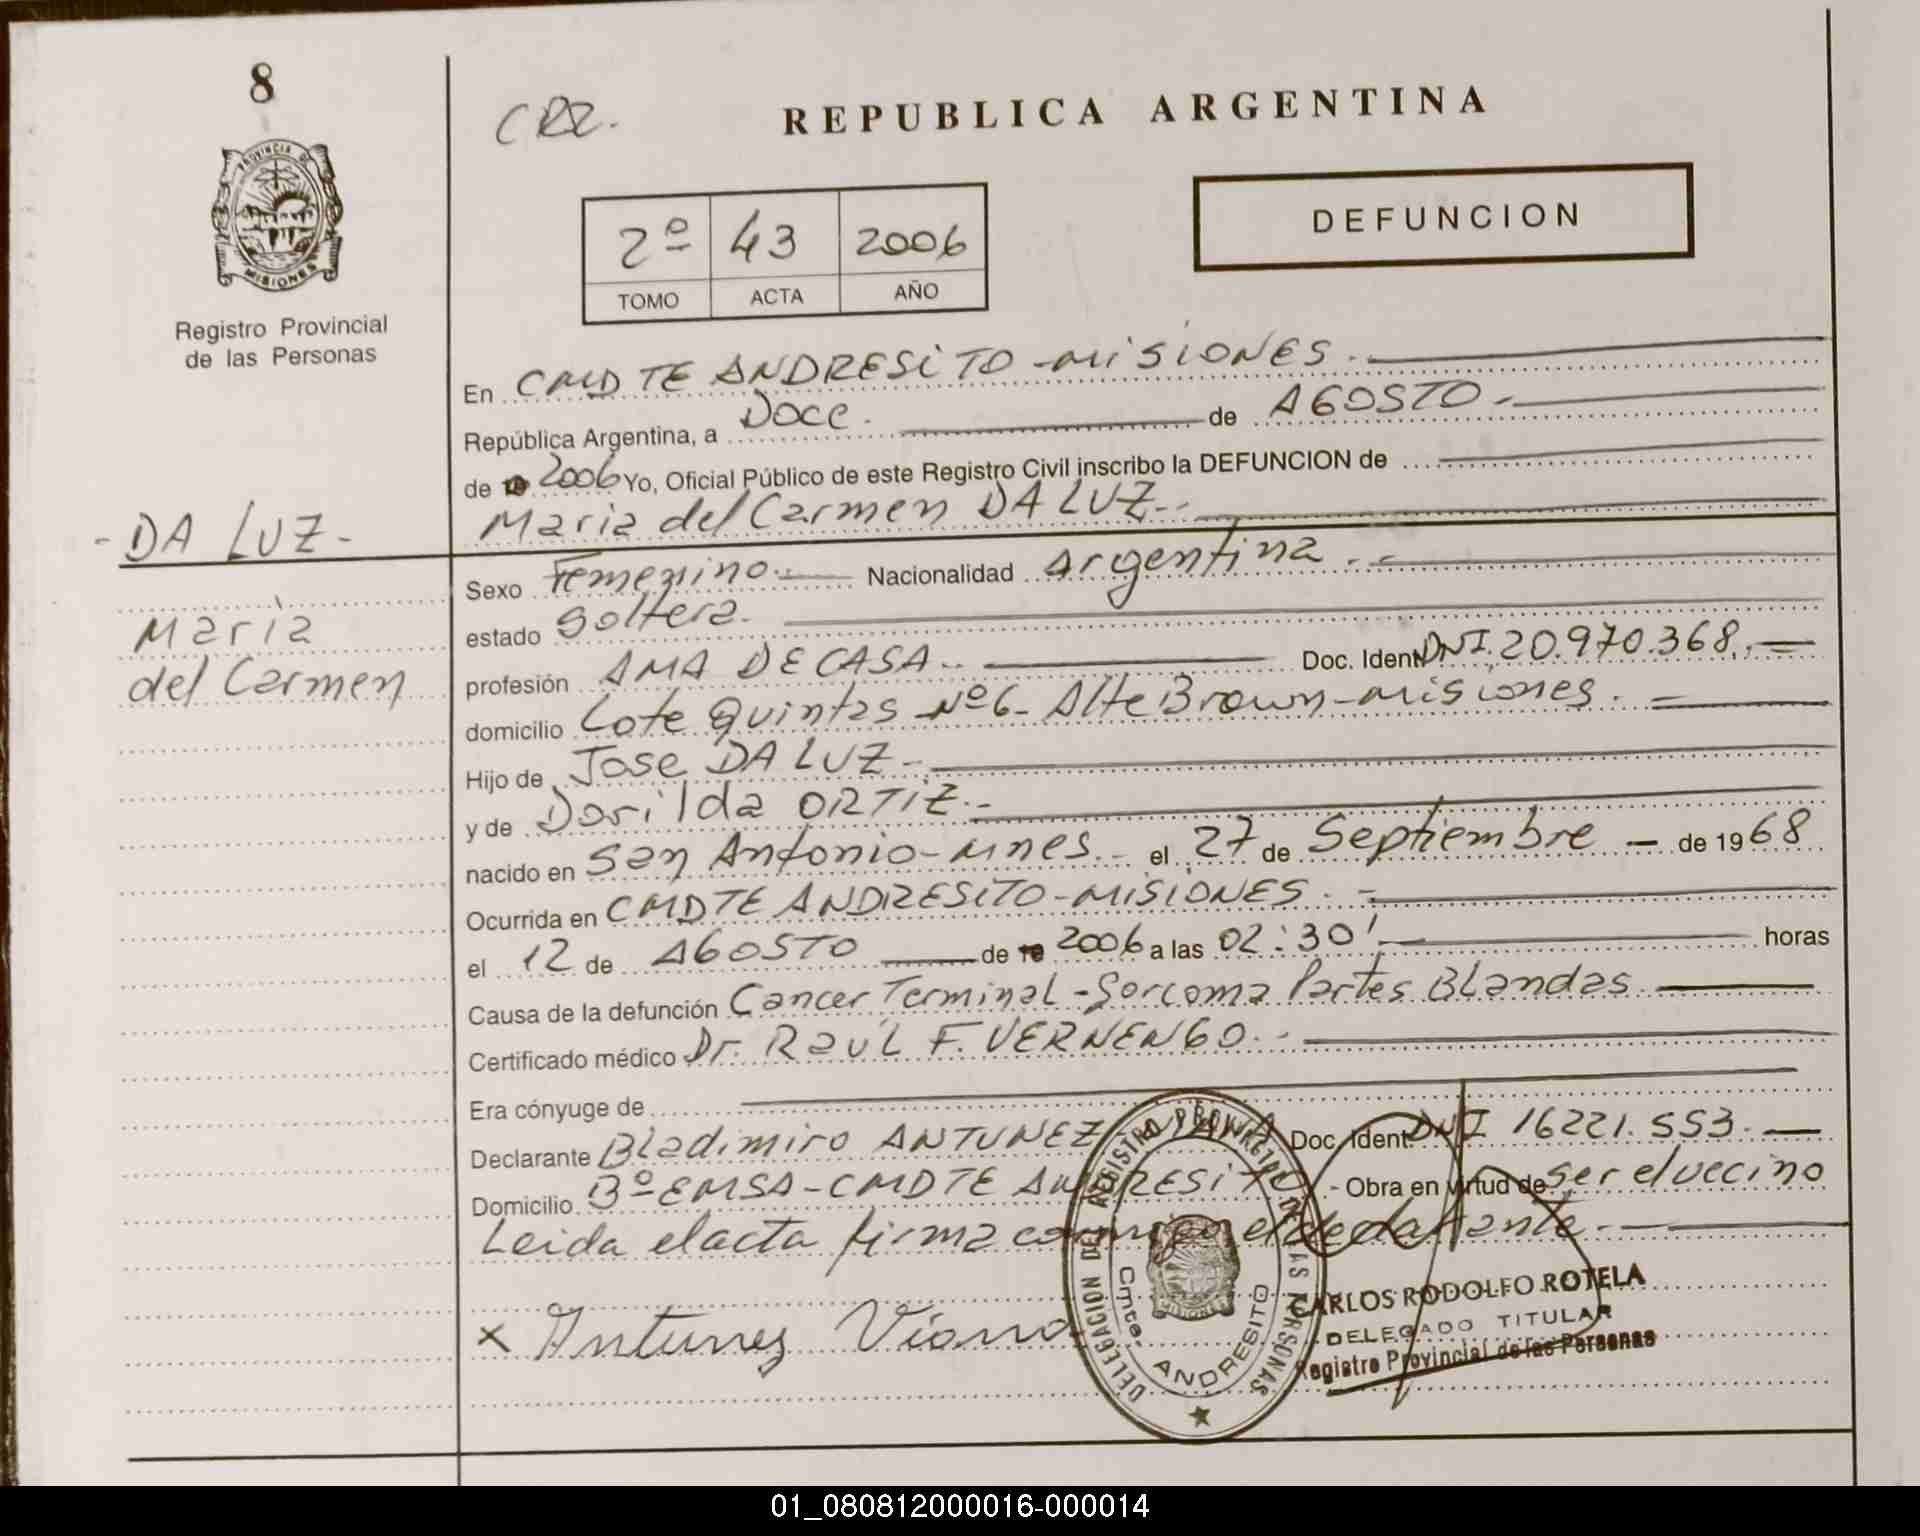 8
CRR.
REPUBLICA ARGENTINA
PROVINCIA DE
MISIONES
Registro Provincial
de las Personas
DEFUNCION
2º 43 2006
TOMO ACTA AÑO
En CMDTE ANDRESITO - MISIONES.
República Argentina, a Doce. de AGOSTO.-
de 2006 Yo, Oficial Público de este Registro Civil inscribo la DEFUNCION de
Maria del Carmen DA LUZ.-
- DA LUZ -
Maria
del Carmen
Sexo Femenino.- Nacionalidad Argentina.-
estado Soltera.
profesión AMA DE CASA.. Doc. Ident. DNI. 20.970.368.-
domicilio Lote Quintas Nº6- Alte Brown - Misiones.
Hijo de Jose DA LUZ -
y de Dorilda ORTIZ.-
nacido en San Antonio - Mnes.- el 27 de Septiembre - de 1968
Ocurrida en CMDTE ANDRESITO - MISIONES.-
el 12 de AGOSTO de 2006 a las 02:30' horas
Causa de la defunción Cancer Terminal - Sorcoma Partes Blandas
Certificado médico Dr. Raúl F. VERNENGO.-
Era cónyuge de
Declarante Bladimiro ANTUNEZ VIANA Doc. Ident. DNI 16221.553.
Domicilio Bº EMSA - CMDTE ANDRESITO.- Obra en virtud de ser el vecino
Leida el acta firma conmigo el declarante.-
x Antunez Viana
DELEGACION DEL REGISTRO PROVINCIAL DE LAS PERSONAS
Cmte. ANDRESITO
MISIONES
CARLOS RODOLFO ROTELA
DELEGADO TITULAR
Registro Provincial de las Personas
01_080812000016-000014